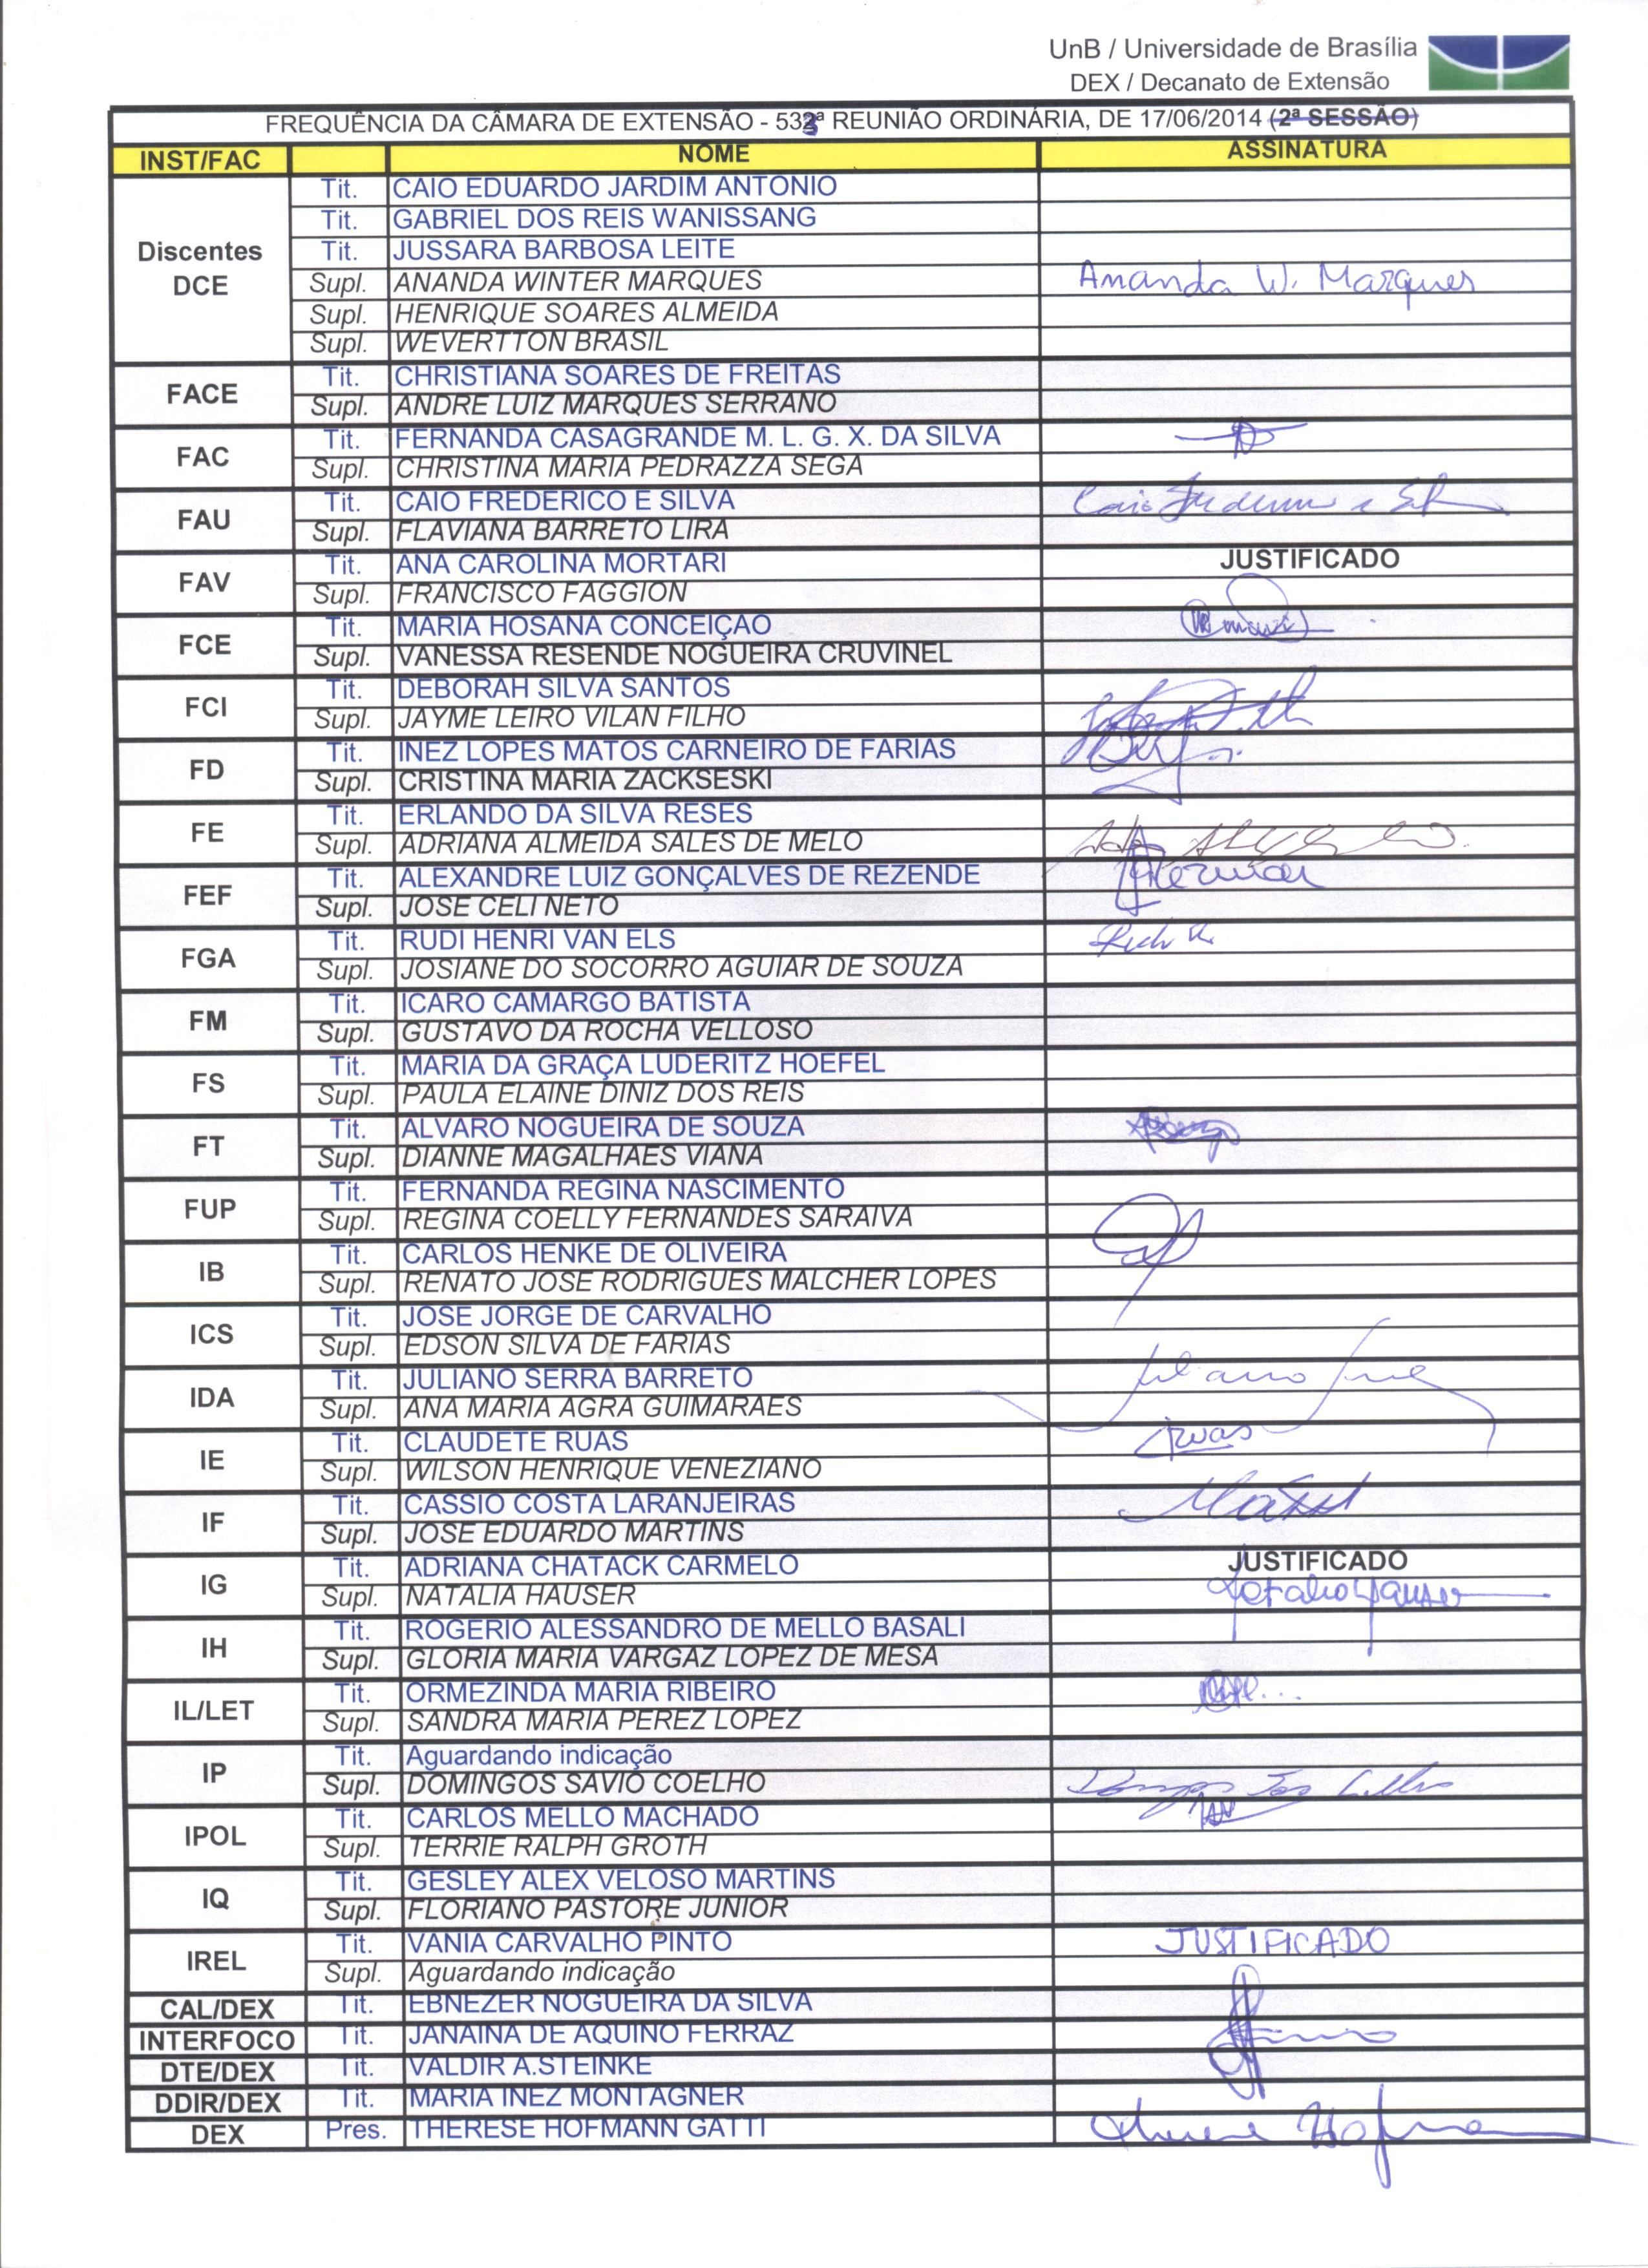 UnB / Universidade de Brasília
DEX / Decanato de Extensão
FREQUÊNCIA DA CÂMARA DE EXTENSÃO - 533ª REUNIÃO ORDINÁRIA, DE 17/06/2014 (2ª SESSÃO)
INST/FAC NOME ASSINATURA
Discentes DCE
Tit. CAIO EDUARDO JARDIM ANTONIO
Tit. GABRIEL DOS REIS WANISSANG
Tit. JUSSARA BARBOSA LEITE
Supl. ANANDA WINTER MARQUES Ananda W. Marques
Supl. HENRIQUE SOARES ALMEIDA
Supl. WEVERTTON BRASIL
FACE Tit. CHRISTIANA SOARES DE FREITAS
Supl. ANDRE LUIZ MARQUES SERRANO
FAC Tit. FERNANDA CASAGRANDE M. L. G. X. DA SILVA
Supl. CHRISTINA MARIA PEDRAZZA SEGA
FAU Tit. CAIO FREDERICO E SILVA Caio Frederico e Silva
Supl. FLAVIANA BARRETO LIRA
FAV Tit. ANA CAROLINA MORTARI JUSTIFICADO
Supl. FRANCISCO FAGGION
FCE Tit. MARIA HOSANA CONCEIÇÃO
Supl. VANESSA RESENDE NOGUEIRA CRUVINEL
FCI Tit. DEBORAH SILVA SANTOS
Supl. JAYME LEIRO VILAN FILHO
FD Tit. INEZ LOPES MATOS CARNEIRO DE FARIAS
Supl. CRISTINA MARIA ZACKSESKI
FE Tit. ERLANDO DA SILVA RESES
Supl. ADRIANA ALMEIDA SALES DE MELO
FEF Tit. ALEXANDRE LUIZ GONÇALVES DE REZENDE
Supl. JOSE CELI NETO
FGA Tit. RUDI HENRI VAN ELS
Supl. JOSIANE DO SOCORRO AGUIAR DE SOUZA
FM Tit. ICARO CAMARGO BATISTA
Supl. GUSTAVO DA ROCHA VELLOSO
FS Tit. MARIA DA GRAÇA LUDERITZ HOEFEL
Supl. PAULA ELAINE DINIZ DOS REIS
FT Tit. ALVARO NOGUEIRA DE SOUZA
Supl. DIANNE MAGALHAES VIANA
FUP Tit. FERNANDA REGINA NASCIMENTO
Supl. REGINA COELLY FERNANDES SARAIVA
IB Tit. CARLOS HENKE DE OLIVEIRA
Supl. RENATO JOSE RODRIGUES MALCHER LOPES
ICS Tit. JOSE JORGE DE CARVALHO
Supl. EDSON SILVA DE FARIAS
IDA Tit. JULIANO SERRA BARRETO
Supl. ANA MARIA AGRA GUIMARAES
IE Tit. CLAUDETE RUAS Ruas
Supl. WILSON HENRIQUE VENEZIANO
IF Tit. CASSIO COSTA LARANJEIRAS
Supl. JOSE EDUARDO MARTINS
IG Tit. ADRIANA CHATACK CARMELO JUSTIFICADO
Supl. NATALIA HAUSER Natalia Hauser
IH Tit. ROGERIO ALESSANDRO DE MELLO BASALI
Supl. GLORIA MARIA VARGAZ LOPEZ DE MESA
IL/LET Tit. ORMEZINDA MARIA RIBEIRO
Supl. SANDRA MARIA PEREZ LOPEZ
IP Tit. Aguardando indicação
Supl. DOMINGOS SAVIO COELHO
IPOL Tit. CARLOS MELLO MACHADO
Supl. TERRIE RALPH GROTH
IQ Tit. GESLEY ALEX VELOSO MARTINS
Supl. FLORIANO PASTORE JUNIOR
IREL Tit. VANIA CARVALHO PINTO JUSTIFICADO
Supl. Aguardando indicação
CAL/DEX Tit. EBNEZER NOGUEIRA DA SILVA
INTERFOCO Tit. JANAINA DE AQUINO FERRAZ
DTE/DEX Tit. VALDIR A.STEINKE
DDIR/DEX Tit. MARIA INEZ MONTAGNER
DEX Pres. THERESE HOFMANN GATTI